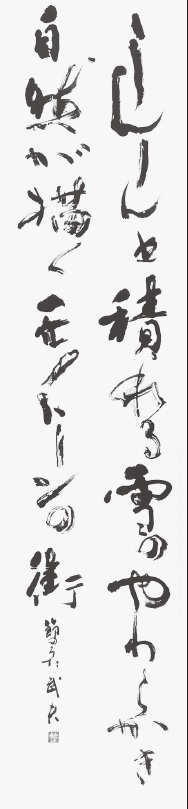 しんしんと積れる雪のやわらかき
自然が描くモノトーンの街